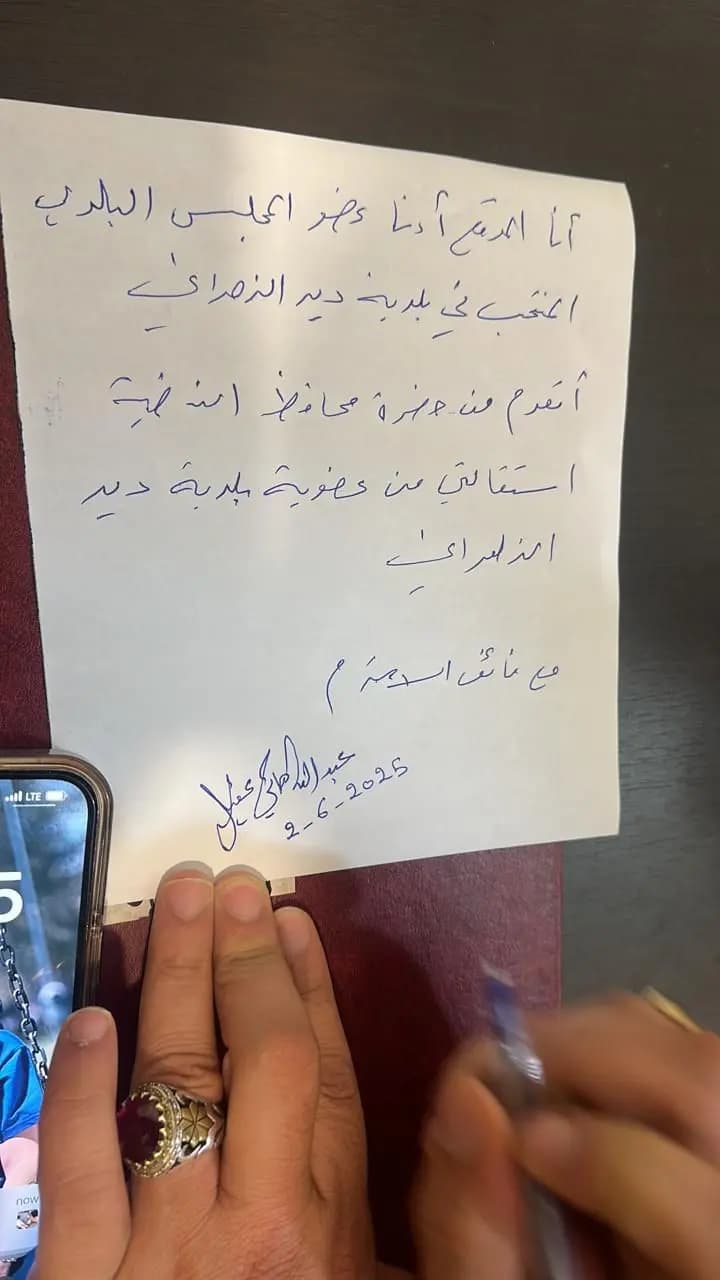 أنا الموقع أدنا عضو المجلس البلدي
المنتخب في بلدية دير الزهراني
أتقدم من حضرة محافظ النبطية
استقالتي من عضوية بلدية دير
الزهراني
مع فائق الاحترام
عبدالله هاني عقيل
2-6-2025
LTE
5
now